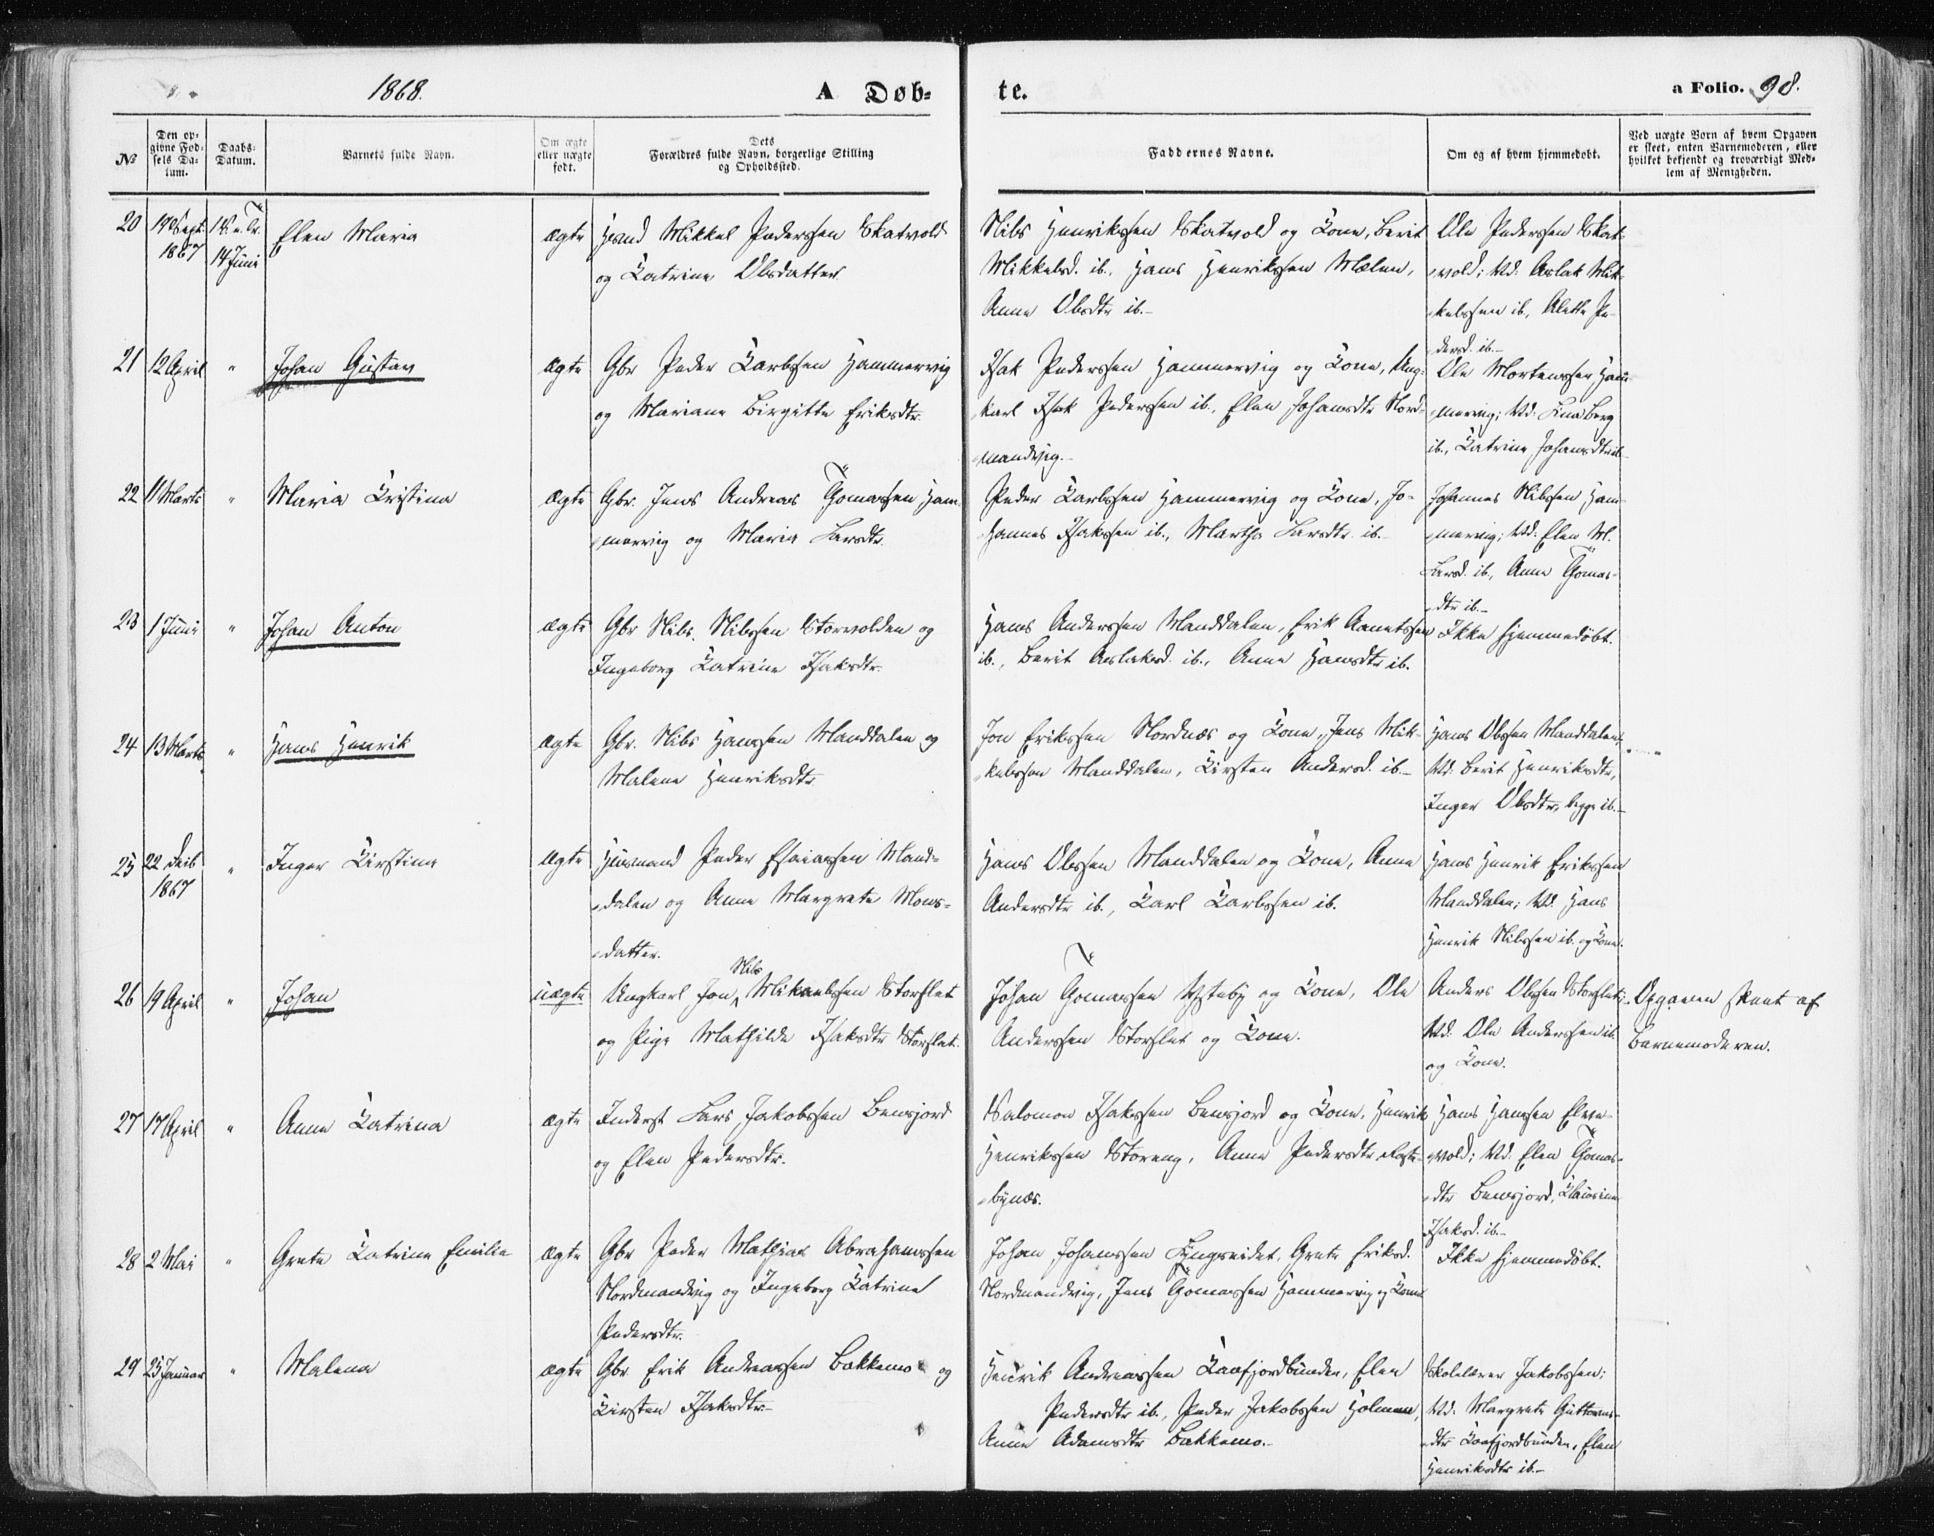 1868.
A Døb-
te.
a Folio. 98.
No
Den op-
givne Fød-
sels Da-
tum.
Daabs-
Datum.
Barnets fulde Navn.
Om ægte
eller uægte
født.
Dets
Forældres fulde Navn, borgerlige Stilling
og Opholdssted.
Faddernes Navne.
Om og af hvem hjemmedøbt.
Ved uægte Børn af hvem Opgaven
er skeet, enten Barnemoderen, eller
hvilket bekjendt og troværdigt Med-
lem af Menigheden.
20
19 Sept.
1867
1 S. e. Tr.
14 Juni
Elen Maria
ægte
Hsmd Mikkel Pederssen Skatvold
og Katrine Olsdatter
Nils Henrikssen Skatvold og Kone, Berit
Mikkelsd. ib., Hans Henrikssen Mælen,
Anne Olsdtr ib.-
Ole Pederssen Skat-
vold; Vd. Aslak Mik-
kelssen ib, Aletta Pe-
dersd. ib.-
21
12 April
"
Johan Gustav
ægte
Gbr Peder Karlssen Hammervig
og Mariane Birgitte Eriksdtr.
Isak Pederssen Hammervig og Kone, Ung-
karl Isak Pederssen ib., Elen Johansdtr Nord-
mandvig.-
Ole Mortenssen Ham-
mervig; Vd. Berg
ib., Katrine Johansdtr ib-
22
11 Marts
"
Maria Kristina
ægte
Gbr. Jens Andreas Thomassen Ham-
mervig og Maria Larsdtr
Peder Karlssen Hammervig og Kone, Jo-
hannes Isakssen ib., Martha Larsdtr ib.-
Johannes Nilssen Ham-
mervig; Vd. Elen M.
Larsd. ib., Anne Thomas-
dtr ib.-
23
1 Juni
"
Johan Anton
ægte
Gbr Nils Nilssen Storvolden og
Ingeborg Katrine Isaksdtr.
Hans Anderssen Manddalen, Erik Aanetssen
ib., Berit Aslaksd. ib., Anne Hansdtr ib.
Ikke hjemmedøbt.
24
13 Marts
"
Hans Henrik
ægte
Gbr. Nils Hanssen Manddalen og
Malene Henriksdtr
Jon Erikssen Nordnæs og Kone, Jens Mik-
kelssen Manddalen, Kirsten Andersd. ib.-
Hans Olssen Manddalen;
Vd. Berit Henriksdtr,
Inger Olsdtr, begge ib.-
25
22 Decb
1867
"
Inger Kirstine
ægte
Husmand Peder Esaiassen Mand-
dalen og Anne Margrete Mons-
datter.
Hans Olssen Manddalen og Kone, Anne
Andersdtr ib., Karl Karlssen ib.
Hans Henrik Erikssen
Manddalen; Vd. Hans
Henrik Nilssen ib. og Kone.
26
19 April
"
Johan
uægte
Nils
Ungkarl Jon Mikaelssen Storslet
og Pige Mathilde Isaksdtr Storslet.
Johan Thomassen Ysteby og Kone, Ole
Anderssen Storslet og Kone.
Anders Olssen Storslet;
Vd. Ole Anderssen ib.
og Kone.
Opgaven skeet af
Barnemoderen.
27
17 April
"
Anne Katrina
ægte
Inderst Lars Jakobssen Bensjord
og Elen Pedersdtr.
Salomon Isakssen Bensjord og Kone, Henrik
Henrikssen Storeng, Anne Pedersdtr
bynæs.
Hans Hanssen Elve-
vold; Vd. Elen Thomas-
dtr Bensjord, Klausine
Isaksd. ib.-
28
2 Mai
"
Grete Katrine Emilie
ægte
Gbr Peder Mathias Abrahamssen
Nordmandvig og Ingeborg Katrine
Pedersdtr.
Johan Johanssen Lyngseidet, Grete Eriksd.
Nordmandvig, Jens Thomassen Hammervig og Kone
Ikke hjemmedøbt.
29
25 Januar
"
Malena
ægte
Gbr Erik Andreassen Bakkemo og
Kirsten Isaksdtr-
Henrik Andreassen Kaafjordbunden, Elen
Pedersdtr ib., Peder Jakobssen Holmen,
Anne Adamsdtr Bakkemo.-
Skolelærer Jakobssen;
Vd. Margrete Guttorms-
dtr Kaafjordbunden, Elen
Henriksdtr ib.-